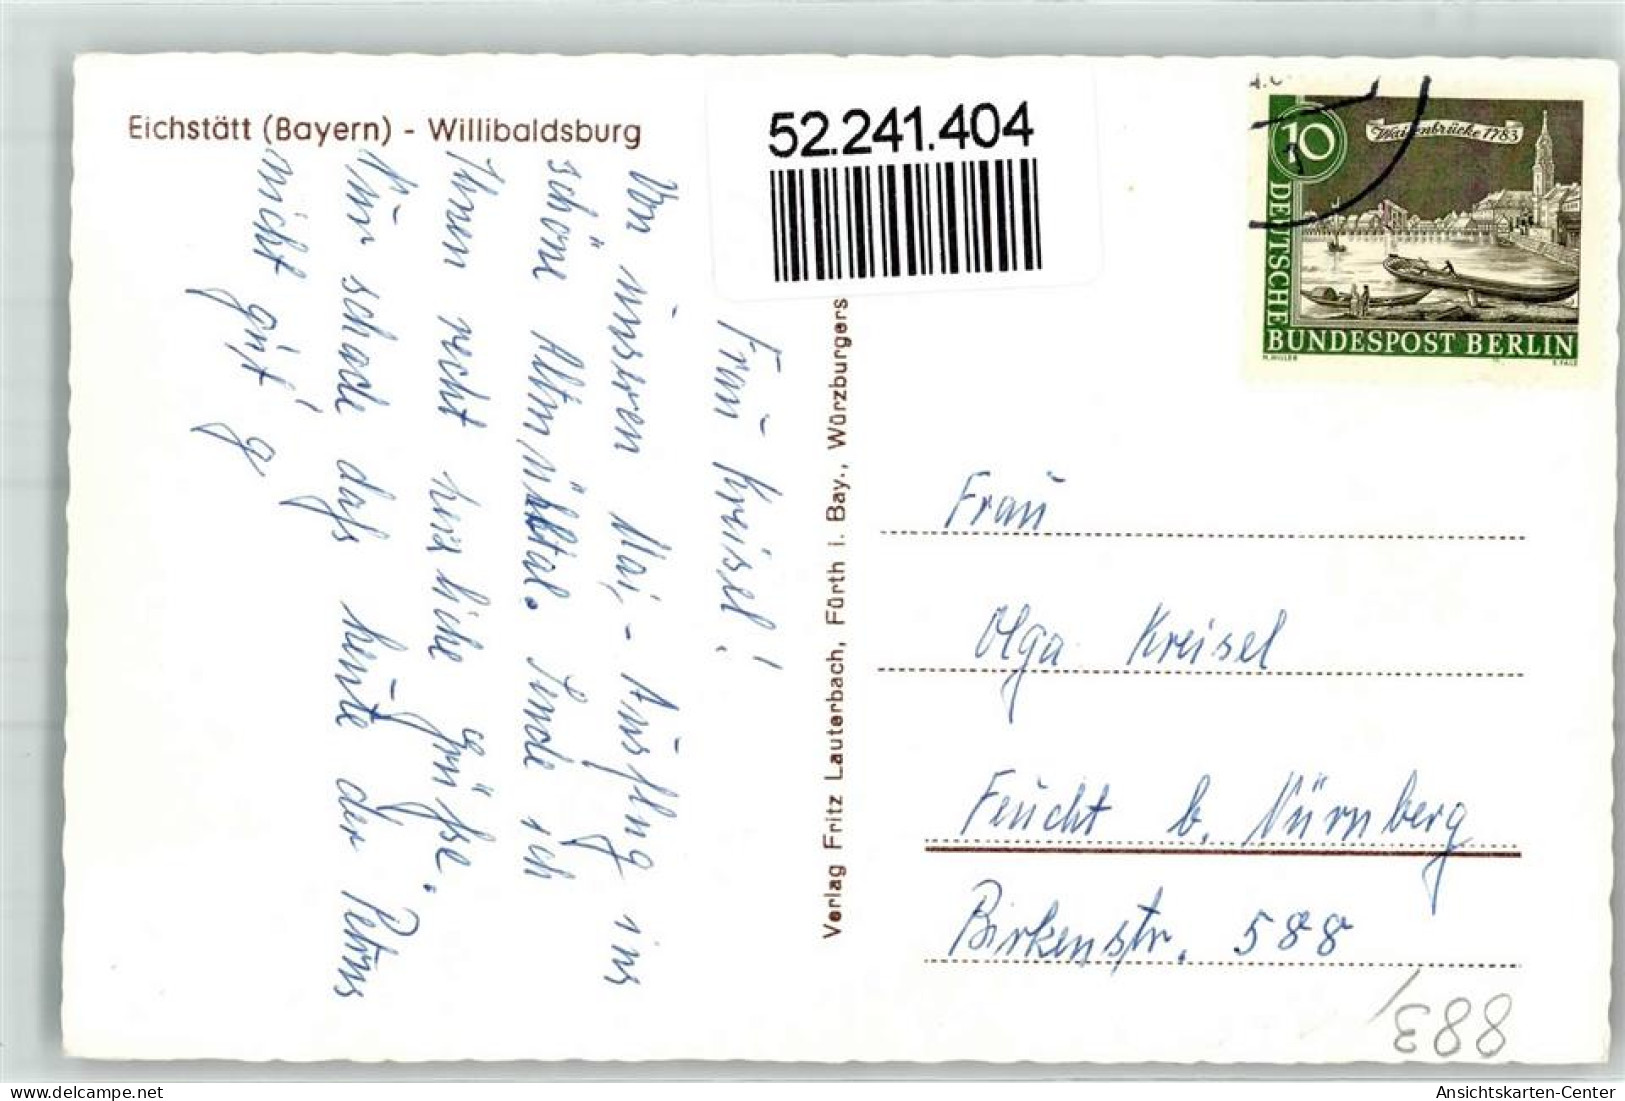 Eichstätt (Bayern) - Willibaldsburg
52.241.404
Frau Kreisel!
Von unseren Mai,- Ausflug ins
schöne Altmühltal. Sende ich
Ihnen recht herzliche Grüße.
Nur schade daß heute der Petrus
nicht gut g
Verlag Fritz Lauterbach, Fürth i. Bay., Würzburgers
10
Waisenbrücke 1783
DEUTSCHE
BUNDESPOST BERLIN
H. HILLER
E. FALZ
Frau
Olga Kreisel
Feucht b. Nürnberg
Birkenstr. 588
883
Ansichtskarten-Center